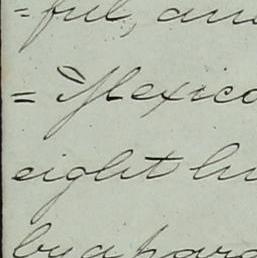 =ful, and
= Mexico
eight hu
by a para